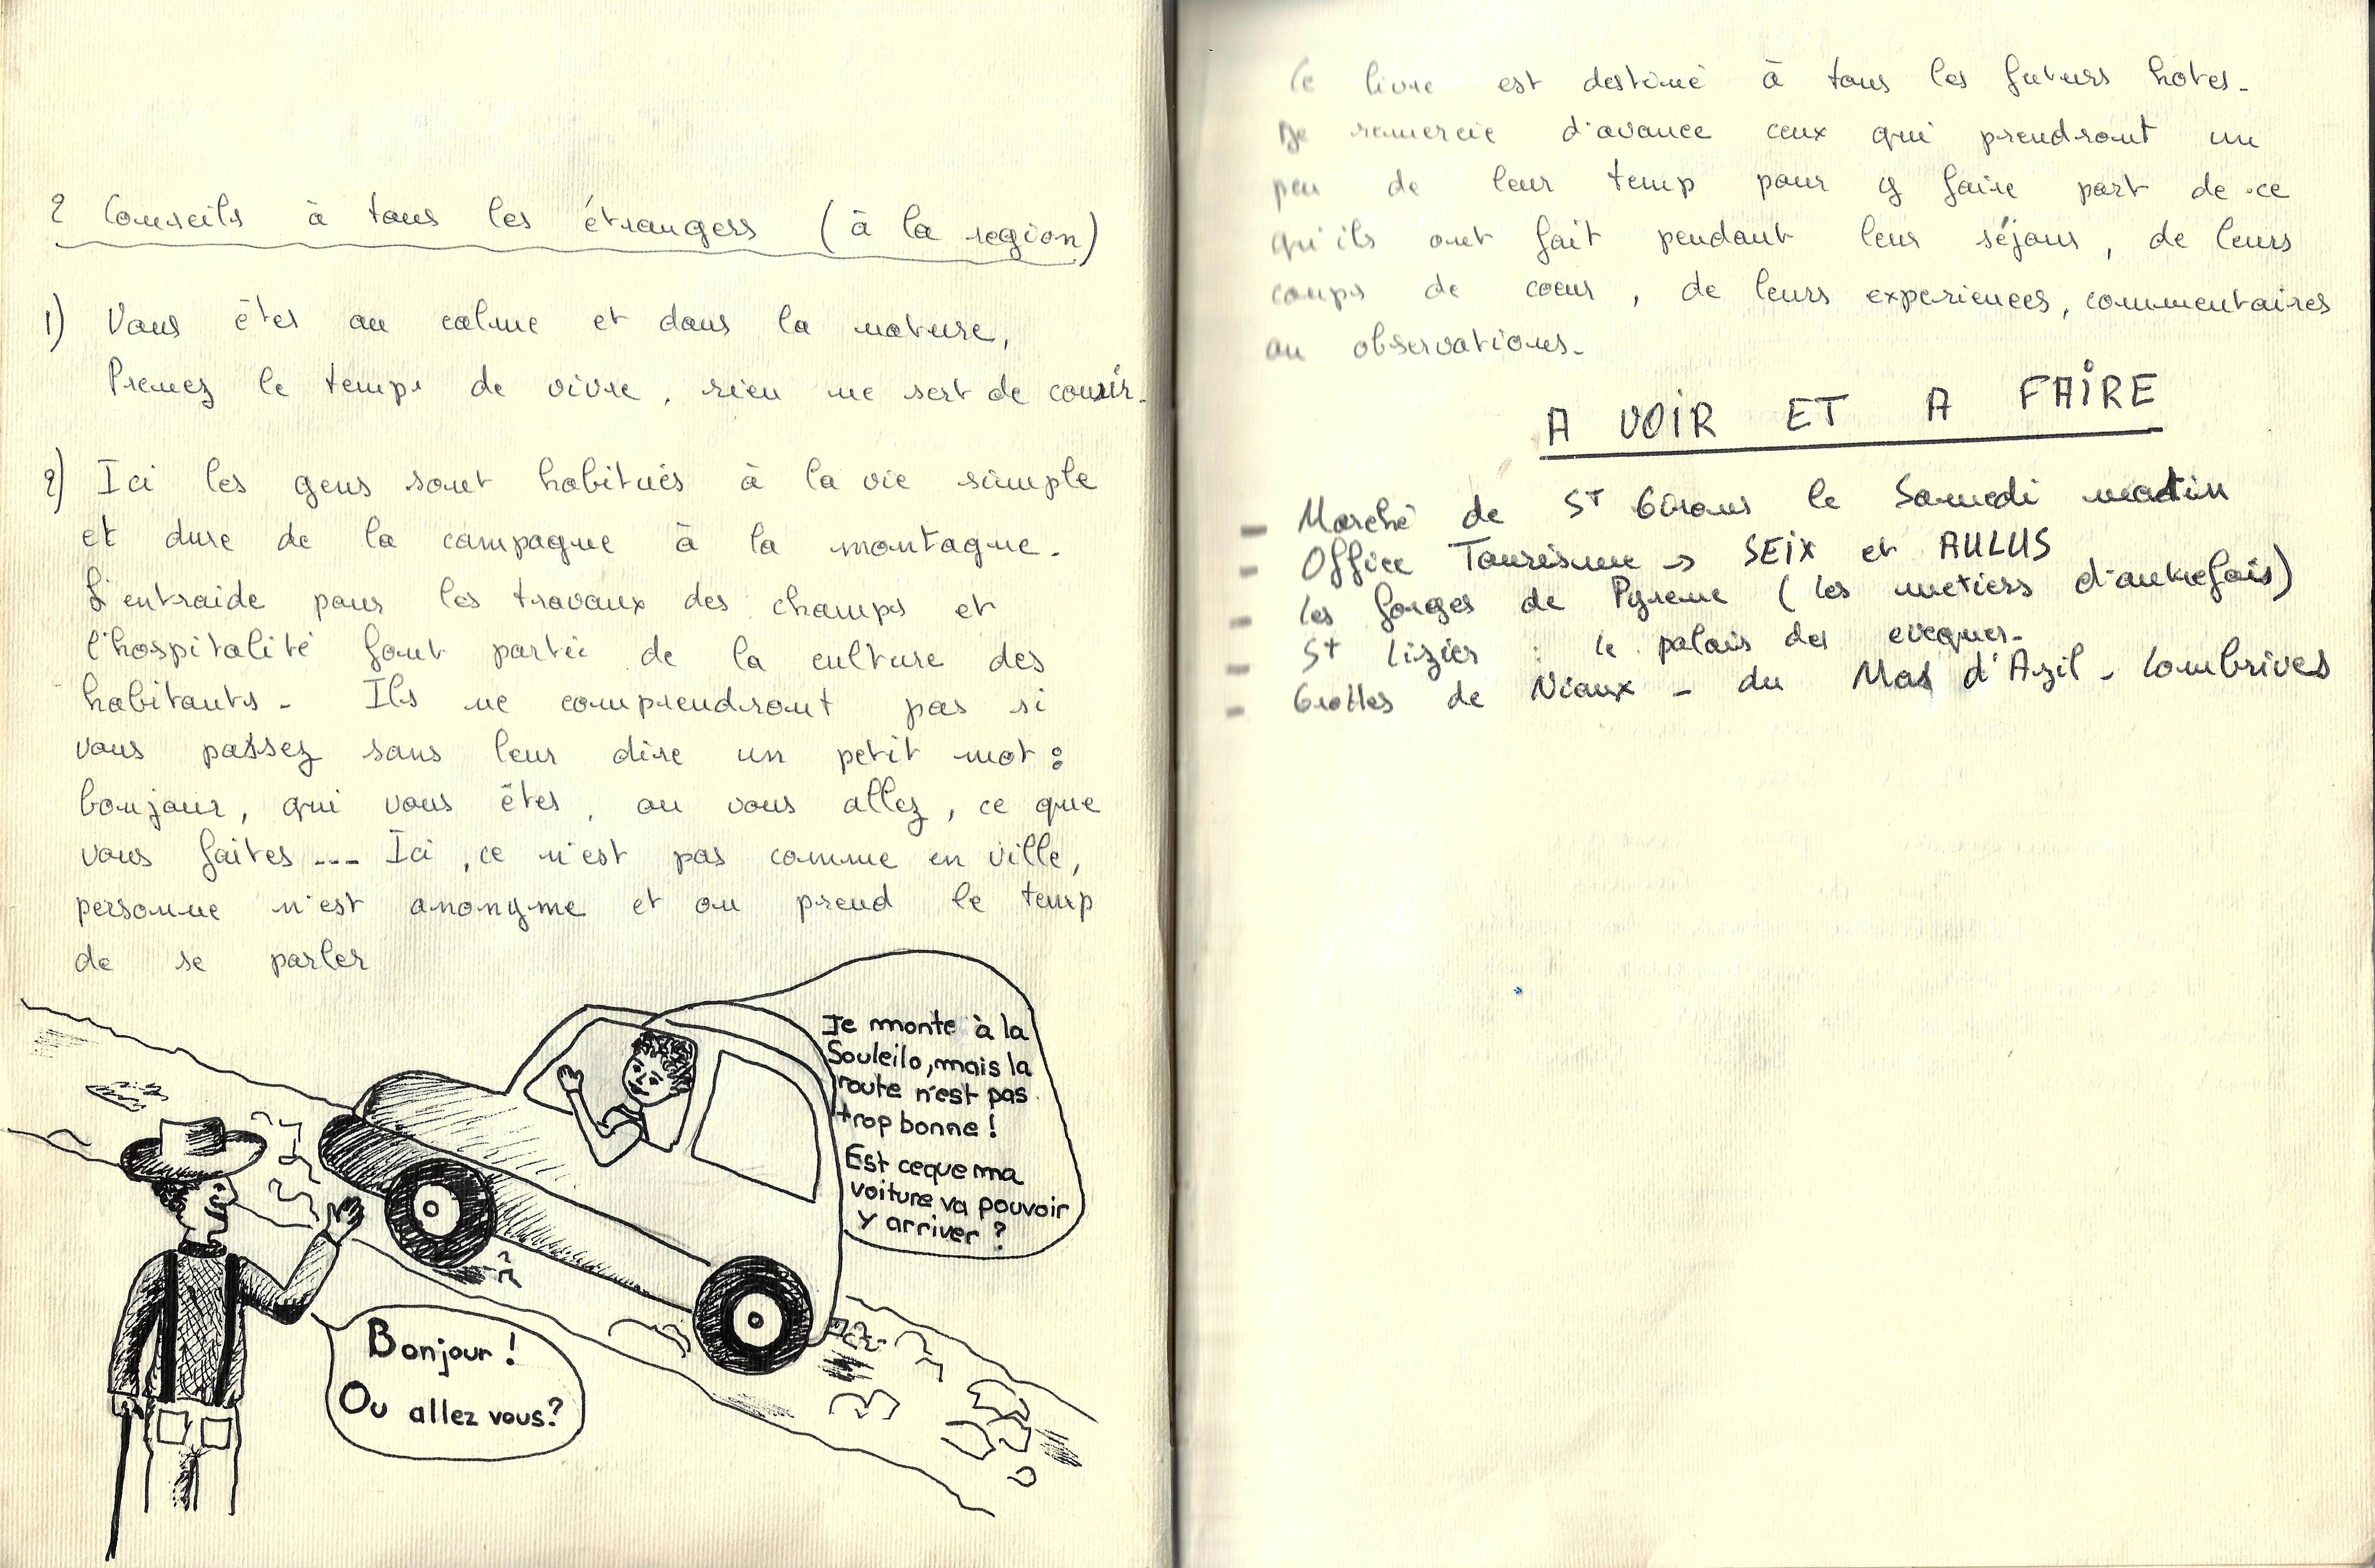 2 Conseils à tous les étrangers (à la region)
1) Vous êtes au calme et dans la nature,
Prenez le temps de vivre, rien ne sert de courir.
2) Ici les gens sont habitués à la vie simple
et dure de la campagne à la montagne.
L'entraide pour les travaux des champs et
l'hospitalité font partie de la culture des
habitants. Ils ne comprendront pas si
vous passez sans leur dire un petit mot :
bonjour, qui vous êtes, ou vous allez, ce que
vous faites --- Ici, ce n'est pas comme en ville,
personne n'est anonyme et on prend le temp
de se parler
Je monte à la
Souleilo, mais la
route n'est pas
trop bonne !
Est ceque ma
voiture va pouvoir
y arriver ?
Bonjour !
Ou allez vous ?
Ce livre est destiné à tous les futurs hotes.
Je remercie d'avance ceux qui prendront un
peu de leur temp pour y faire part de ce
qu'ils ont fait pendant leur séjour, de leurs
coups de coeur, de leurs experiences, commentaires
ou observations.
A VOIR ET A FAIRE
- Marché de St Girons le Samedi matin
- Office Tourisme → SEIX et AULUS
- les forges de Pyrene (les metiers d'autrefois)
- St Lizier : le palais des eveques.
- Grottes de Niaux - du Mas d'Azil - Lombrives